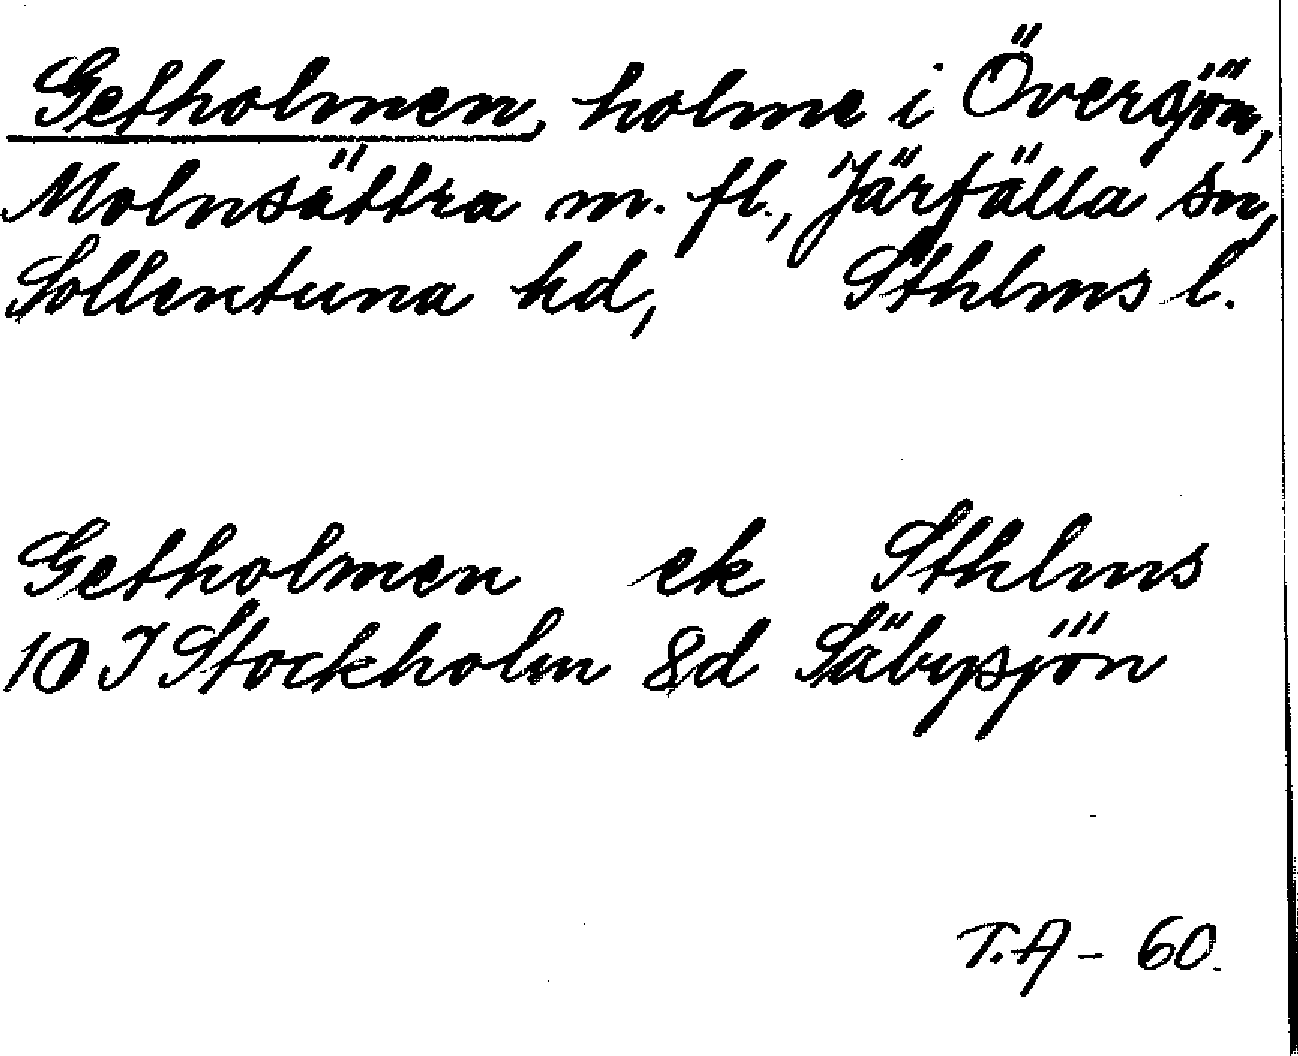 Getholmen, holme i Översjön,
Molnsättra m. fl., Järfälla sn,
Sollentuna hd, Sthlms l.
Getholmen ek Sthlms
10 I Stockholm 8d Säbysjön
T.A - 60.